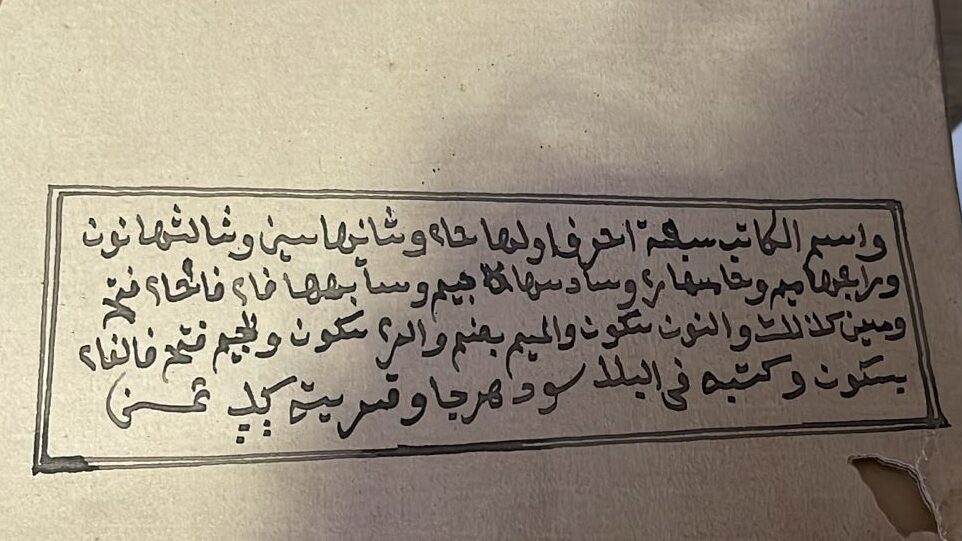 واسم الكاتب سبعة احرف اولها حاء وثانيها سين وثالثها نون
ورابعها ميم وخامسها رء وسادسها جيم وسابعها فاء فالحاء فتح
وسين كذلك والنون سكون والميم بضم والرء سكون والجيم فتح فالفاء
بسكون وكتبه فى البلد سود هرجا وقريته